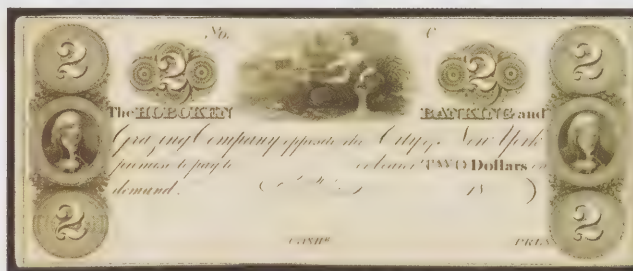 2 No. C 2
2 2
The HOBOKEN BANKING and
Grazing Company opposite the City of New York
promise to pay to or bearer TWO Dollars on
demand. 18
2 2
CASHR. PRES